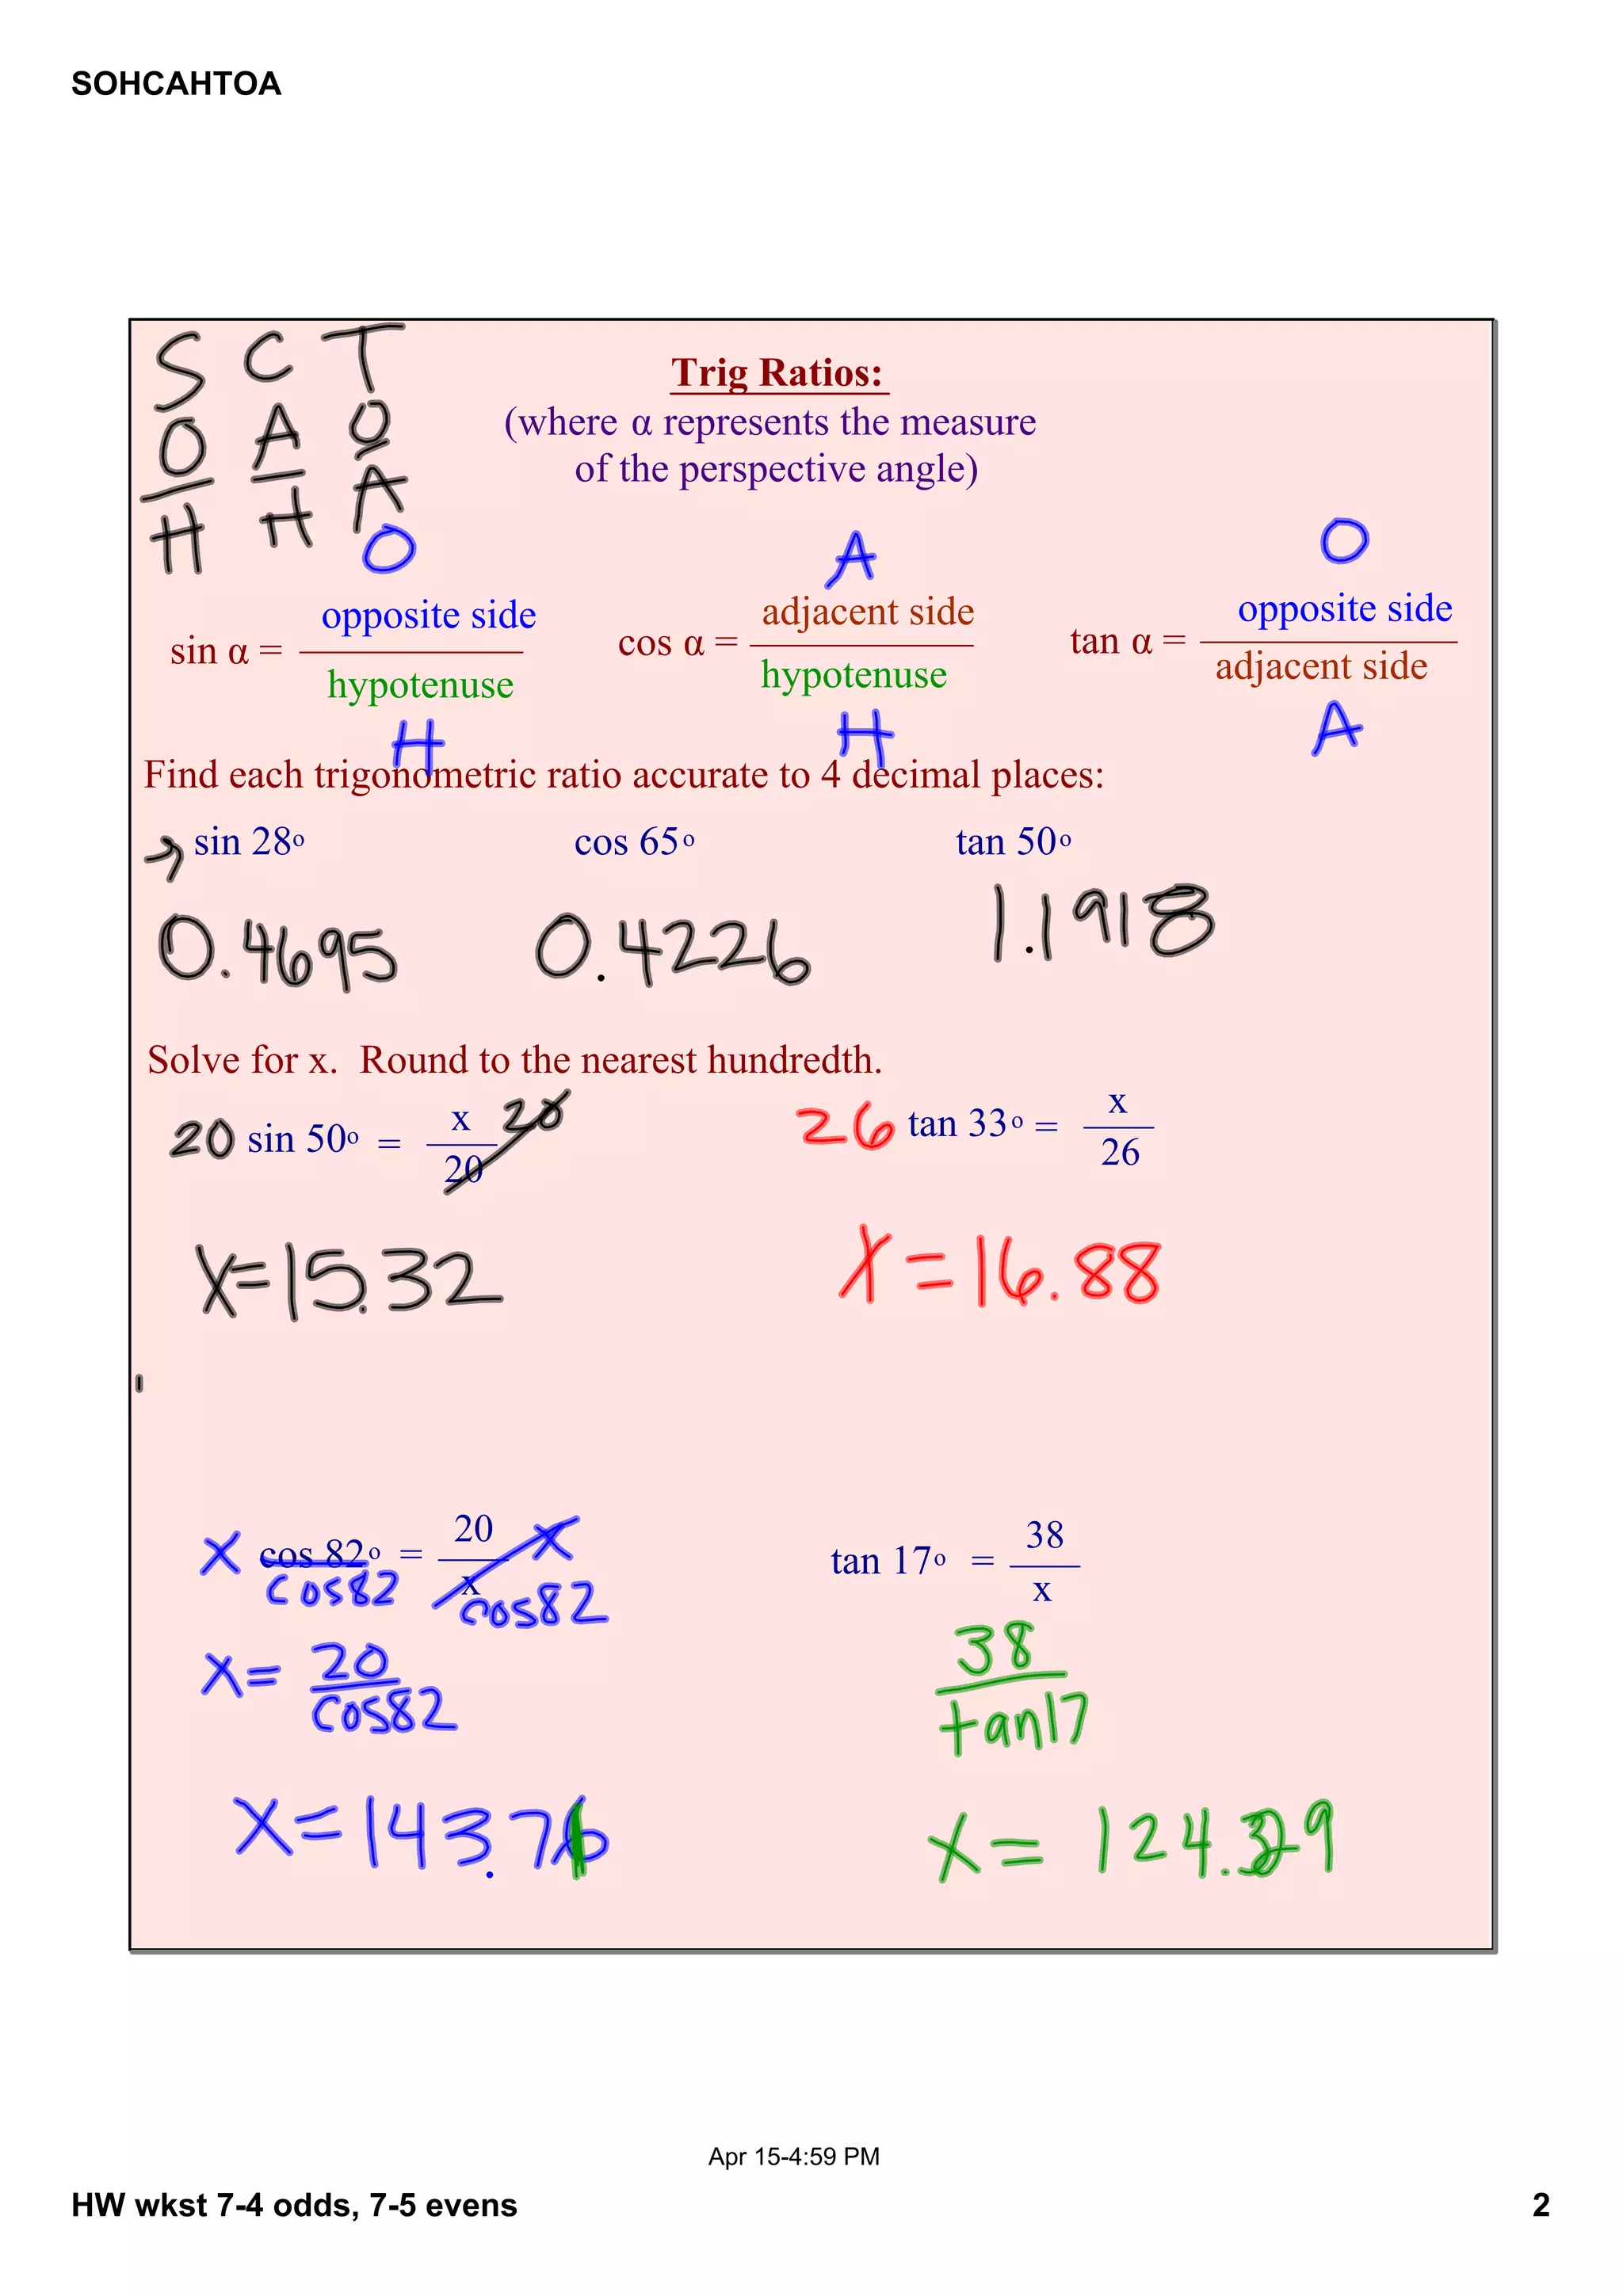 SOHCAHTOA
S C T
O A O
H H A
Trig Ratios:
(where α represents the measure
of the perspective angle)
O A O
sin α = opposite side / hypotenuse cos α = adjacent side / hypotenuse tan α = opposite side / adjacent side
H H A
Find each trigonometric ratio accurate to 4 decimal places:
→ sin 28° cos 65° tan 50°
0.4695 0.4226 1.1918
Solve for x. Round to the nearest hundredth.
20 sin 50° = x/20 20 26 tan 33° = x/26
x=15.32 x=16.88
x cos 82° = 20/x x tan 17° = 38/x
cos82 cos82
x= 20/cos82 38/tan17
x=143.71 x= 124.29
Apr 15-4:59 PM
HW wkst 7-4 odds, 7-5 evens 2